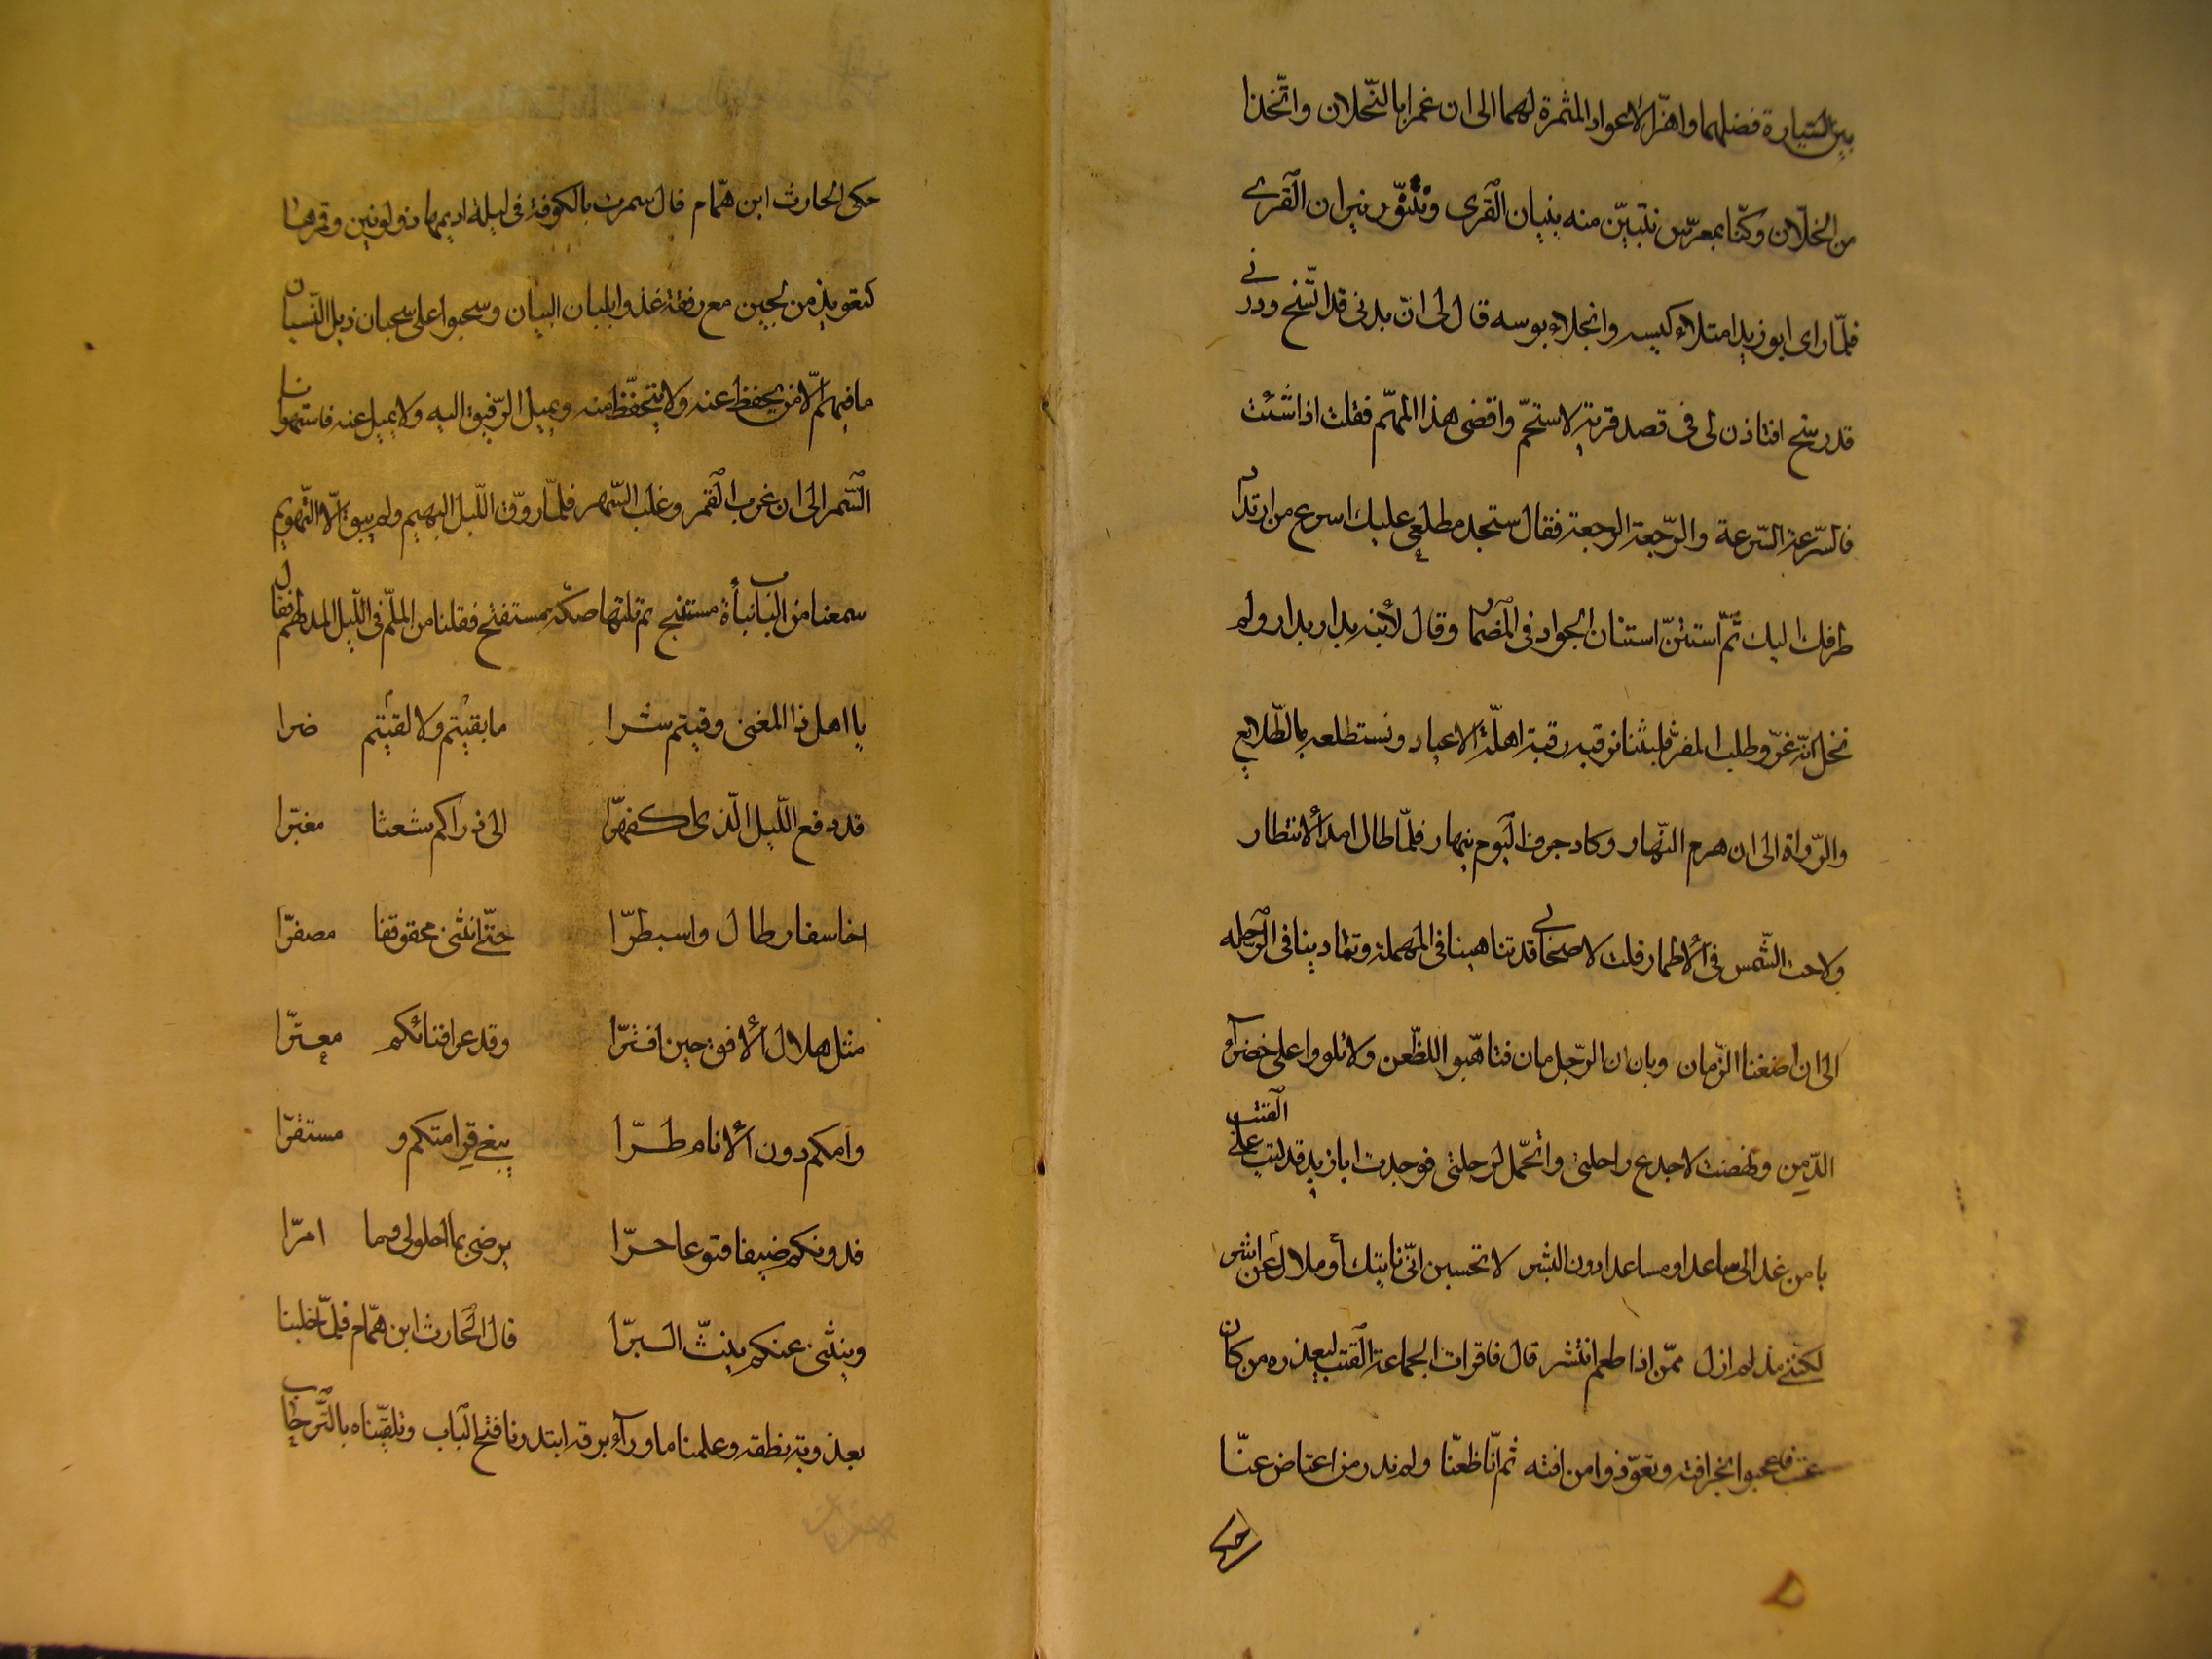 بين السّيارة فضلهما واهزّ الاعواد المثمرة لهما الى ان غمرا بالنّحلان واتّخذا
من الخلّان وكنّا بمعرّس نتبيّن منه بنيان القرى ونتنوّر نيران القرى
فلمّا راى ابو زيد امتلاء كيسه وانجلاء بوسه قال لى انّ بدنى قد اتّسخ ودرنى
قد رسخ افتاذن لى فى قصد قرية لاستحمّ واقضى هذا المهمّ فقلت اذا شئت
فالسّرعة السّرعة والرّجعة الرجعة فقال ستجد مطلعى عليك اسرع من ارتداد
طرفك اليك ثمّ استنّ استنان الجواد فى المضمار وقال لأبنه بدار بدار ولم
نخل انّه غرّ وطلب المفرّ فلبثنا نرقبه رقبة اهلّة الاعياد ونستطلعه بالطّلايع
والرّواة الى ان هرم النّهار وكاد جرف اليوم ينهار فلمّا طال امد الأنتظار
ولاحت الشّمس فى الأطمار قلت لاصحابى قد تناهينا فى المهملة وتمادينا فى الرّحله
الى ان اضعنا الزّمان وبان ان الرّجل مان فتاهّبوا للظّعن ولا تلووا على خضرآء
الدّمن ونهضت لاحدج راحلتى واتحمّل لرحلتى فوجدت ابا زيد قد كتب على القتب
يا من غدا لى ساعدا ومساعدا دون البشر لا تحسبن انّى نايتك أو ملال أ عن اشر
لكنّنى مذ لم ازل ممّن اذا طعم انتشر قال فاقرات الجماعة القتب ليعذره من كان
عتب فاعجبوا بخرافته وتعوّذوا من افته ثم انّا ظعنّا ولم ندر من اعتاض عنّا
حكى
حكى الحارث ابن همّام قال سمرت بالكوفة فى ليلة اديمها ذو لونين وقمرها
كتعويذ من لجين مع رفقة غذوا بلبان البيان وسحبوا على سحبان ذيل النّسيان
ما فيهم الّا من يحفظ عنه ولا يتحفّظ منه ويميل الرّفيق اليه ولا يميل عنه فاستهوانا
السّمر الى ان غرب القمر وغلب السّهر فلمّا روّق اللّيل البهيم ولم يبق الّا التّهويم
سمعنا من الباب نبأة مستنبح ثم تلتها صكّة مستفتح فقلنا من الملمّ فى اللّيل المدلهم فقال
يا اهل ذا المغنى وقيتم شرا ما بقيتم ولا لقيتم ضرا
قد دفع اللّيل الّذى اكفهرّا الى ذراكم شعثا مغبرا
اخا سفار طال واسبطرّا حتّى انثنى محقوقفا مصفرّا
مثل هلال الأفق حين افترّا وقد عرا فنائكم معترّا
وامكم دون الأنام طرّا يبغى قرامنكم و مستقرّا
فدونكم ضيفا قنوعا حرّا يرضى بما احلولى وما امرّا
وينثنى عنكم ينثّ البرّا قال الحارث ابن همّام فلمّا خلبنا
بعذوبة نطقه وعلمنا ما ورآء برقه ابتدرنا فتح الباب وتلقّيناه بالتّرحاب